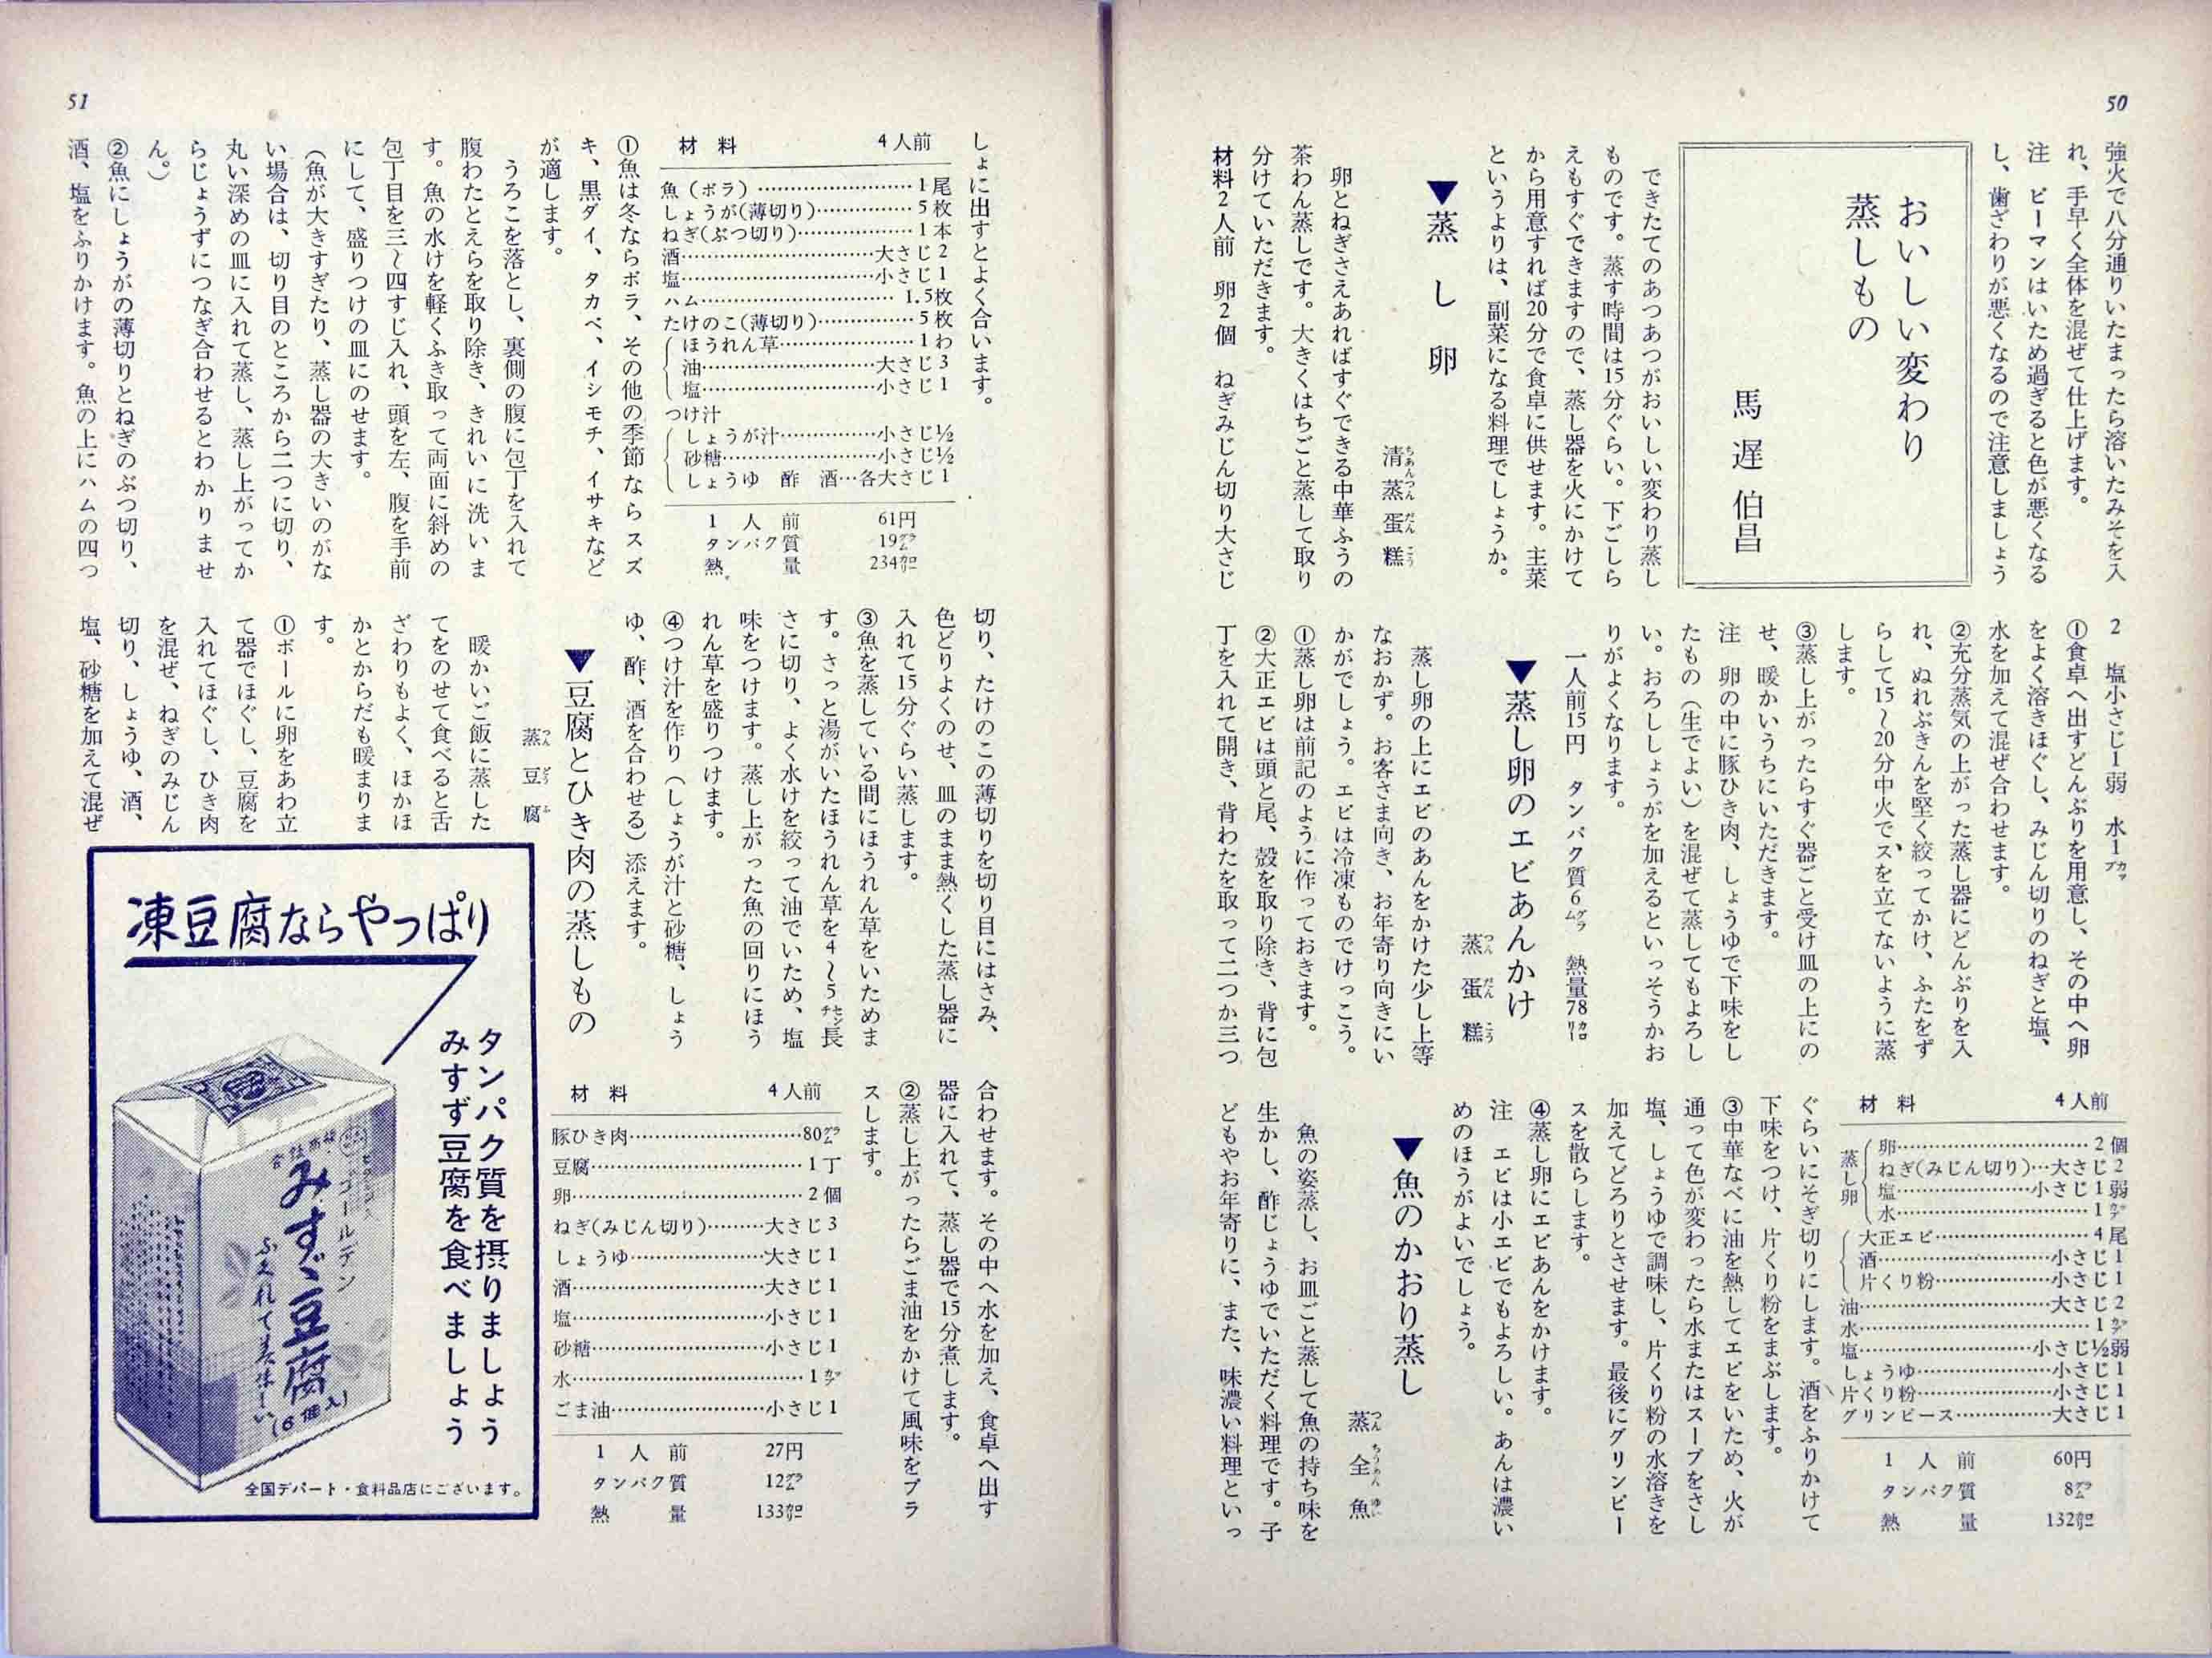 50
強火で八分通りいたまったら溶いたみそを入
れ、手早く全体を混ぜて仕上げます。
注　ピーマンはいため過ぎると色が悪くなる
し、歯ざわりが悪くなるので注意しましょう
おいしい変わり
蒸しもの
馬遅伯昌
できたてのあつあつがおいしい変わり蒸し
ものです。蒸す時間は15分ぐらい。下ごしら
えもすぐできますので、蒸し器を火にかけて
から用意すれば20分で食卓に供せます。主菜
というよりは、副菜になる料理でしょうか。
▼蒸し卵
清蒸蛋糕
ちあんつんだんこう
卵とねぎさえあればすぐできる中華ふうの
茶わん蒸しです。大きくはちごと蒸して取り
分けていただきます。
材料２人前　卵２個　ねぎみじん切り大さじ
２　塩小さじ１弱　水１カップ
①食卓へ出すどんぶりを用意し、その中へ卵
をよく溶きほぐし、みじん切りのねぎと塩、
水を加えて混ぜ合わせます。
②充分蒸気の上がった蒸し器にどんぶりを入
れ、ぬれぶきんを堅く絞ってかけ、ふたをず
らして15〜20分中火で、スを立てないように蒸
します。
③蒸し上がったらすぐ器ごと受け皿の上にの
せ、暖かいうちにいただきます。
注　卵の中に豚ひき肉、しょうゆで下味をし
たもの（生でよい）を混ぜて蒸してもよろし
い。おろししょうがを加えるといっそうかお
りがよくなります。
一人前15円　タンパク質６グラム　熱量78カロリー
▼蒸し卵のエビあんかけ
蒸蛋糕
つんだんこう
蒸し卵の上にエビのあんをかけた少し上等
なおかず。お客さま向き、お年寄り向きにい
かがでしょう。エビは冷凍ものでけっこう。
①蒸し卵は前記のように作っておきます。
②大正エビは頭と尾、殻を取り除き、背に包
丁を入れて開き、背わたを取って二つか三つ
材料　４人前
蒸し卵
卵……２個
ねぎ(みじん切り)…大さじ２
塩……小さじ１弱
水……１カップ
大正エビ……４尾
酒……小さじ１
片くり粉……小さじ１
油……大さじ２
水……１カップ
塩……小さじ½弱
しょうゆ……小さじ１
片くり粉……小さじ１
グリンピース……大さじ１
１人前　60円
タンパク質　8グラム
熱量　132カロリー
ぐらいにそぎ切りにします。酒をふりかけて
下味をつけ、片くり粉をまぶします。
③中華なべに油を熱してエビをいため、火が
通って色が変わったら水またはスープをさし
塩、しょうゆで調味し、片くり粉の水溶きを
加えてどろりとさせます。最後にグリンピー
スを散らします。
④蒸し卵にエビあんをかけます。
注　エビは小エビでもよろしい。あんは濃い
めのほうがよいでしょう。
▼魚のかおり蒸し
蒸全魚
つんちうあんゆい
魚の姿蒸し、お皿ごと蒸して魚の持ち味を
生かし、酢じょうゆでいただく料理です。子
どもやお年寄りに、また、味濃い料理といっ
51
しょに出すとよく合います。
材料　４人前
魚（ボラ）……１尾
しょうが(薄切り)……５枚
ねぎ(ぶつ切り)……１本
酒……大さじ２
塩……小さじ１
ハム……1.5枚
たけのこ(薄切り)……５枚
ほうれん草……１わ
油……大さじ３
塩……小さじ１
つけ汁
しょうが汁……小さじ½
砂糖……小さじ½
しょうゆ　酢　酒…各大さじ１
１人前　61円
タンパク質　19グラム
熱量　234カロリー
①魚は冬ならボラ、その他の季節ならスズ
キ、黒ダイ、タカベ、イシモチ、イサキなど
が適します。
うろこを落とし、裏側の腹に包丁を入れて
腹わたとえらを取り除き、きれいに洗いま
す。魚の水けを軽くふき取って両面に斜めの
包丁目を三〜四すじ入れ、頭を左、腹を手前
にして、盛りつけの皿にのせます。
（魚が大きすぎたり、蒸し器の大きいのがな
い場合は、切り目のところから二つに切り、
丸い深めの皿に入れて蒸し、蒸し上がってか
らじょうずにつなぎ合わせるとわかりませ
ん。）
②魚にしょうがの薄切りとねぎのぶつ切り、
酒、塩をふりかけます。魚の上にハムの四つ
切り、たけのこの薄切りを切り目にはさみ、
色どりよくのせ、皿のまま熱くした蒸し器に
入れて15分ぐらい蒸します。
③魚を蒸している間にほうれん草をいためま
す。さっと湯がいたほうれん草を４〜５センチ長
さに切り、よく水けを絞って油でいため、塩
味をつけます。蒸し上がった魚の回りにほう
れん草を盛りつけます。
④つけ汁を作り（しょうが汁と砂糖、しょう
ゆ、酢、酒を合わせる）添えます。
▼豆腐とひき肉の蒸しもの
蒸豆腐
つんどうふ
暖かいご飯に蒸した
てをのせて食べると舌
ざわりもよく、ほかほ
かとからだも暖まりま
す。
①ボールに卵をあわ立
て器でほぐし、豆腐を
入れてほぐし、ひき肉
を混ぜ、ねぎのみじん
切り、しょうゆ、酒、
塩、砂糖を加えて混ぜ
合わせます。その中へ水を加え、食卓へ出す
器に入れて、蒸し器で15分煮します。
②蒸し上がったらごま油をかけて風味をプラ
スします。
材料　４人前
豚ひき肉……80グラム
豆腐……１丁
卵……２個
ねぎ(みじん切り)……大さじ３
しょうゆ……大さじ１
酒……大さじ１
塩……小さじ１
砂糖……小さじ１
水……１カップ
ごま油……小さじ１
１人前　27円
タンパク質　12グラム
熱量　133カロリー
凍豆腐ならやっぱり
タンパク質を摂りましょう
みすず豆腐を食べましょう
ゴールデン
みすゞ豆腐
ふくれて美味しい
(6個入)
全国デパート・食料品店にございます。